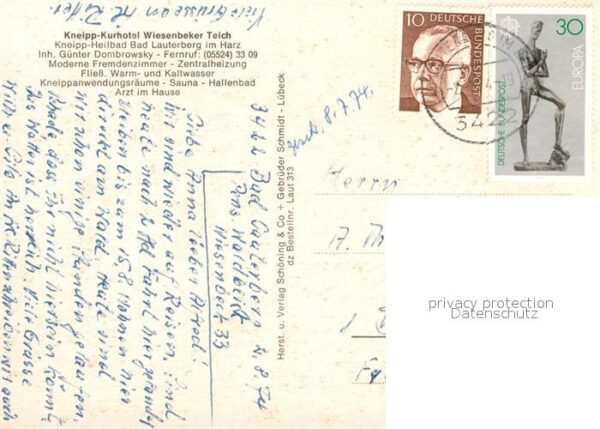 Kneipp-Kurhotel Wiesenbeker Teich
Kneipp-Heilbad Bad Lauterberg im Harz
Inh. Günter Dombrowsky - Fernruf: (05524) 33 09
Moderne Fremdenzimmer - Zentralheizung
Fließ. Warm- und Kaltwasser
Kneippanwendungsräume - Sauna - Hallenbad
Arzt im Hause
3422 Bad Lauterberg 2.8.74
Pens Waldblick
Wiesenbek 33
Liebe Anna lieber Alfred!
Wir sind wieder auf Reisen, sind
heute nach 2 Std Fahrt hier gelandet
bleiben bis zum 15.8. Wohnen hier
direkt am Wald, heute sind
wir schon einige Stunden gelaufen.
Schade dass Ihr nicht hier sein könnt
Das Wetter ist herrlich. Viele Grüsse
Viele Grüsse
Herst. u. Verlag Schöning & Co + Gebrüder Schmidt - Lübeck
dz Bestellnr. Laut 313
8.7.74.
10
DEUTSCHE BUNDESPOST
3422
30
EUROPA
DEUTSCHE BUNDESPOST
CEPT
Herrn
A. Th
1
privacy protection
Datenschutz